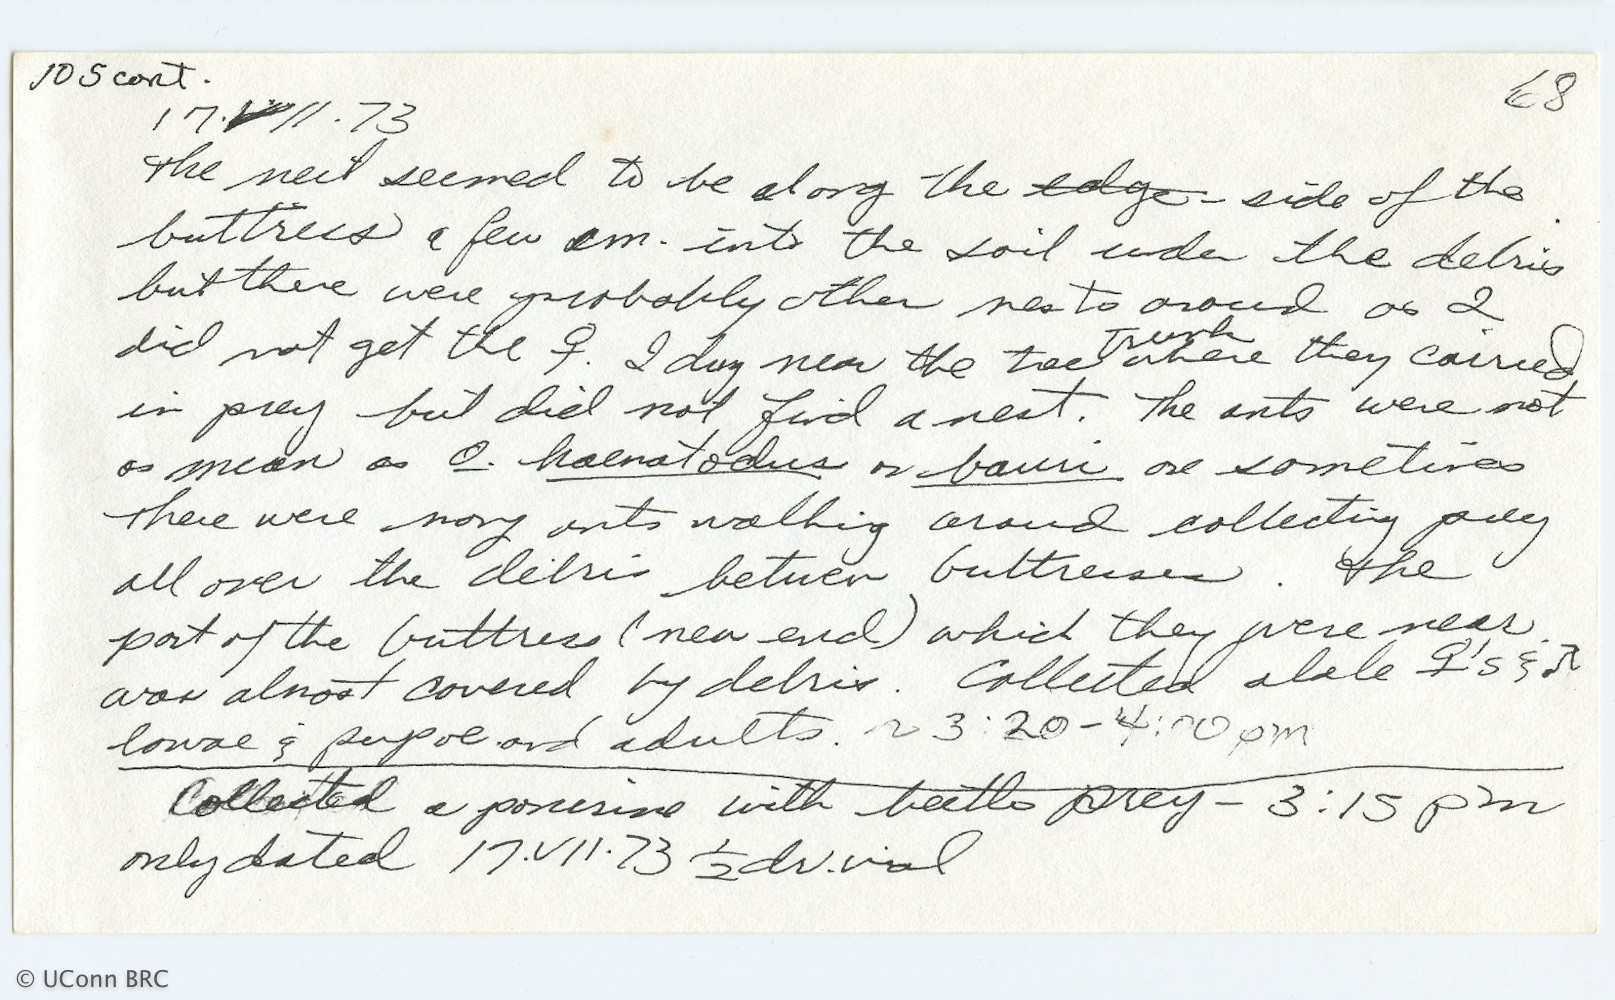 105 cont.
68
17.VII.73
The nest seemed to be along the edge - side of the
buttress a few cm. into the soil under the debris
but there were probably other nests around as I
did not get the ♀. I dug near the tree trunk where they carried
in prey but did not find a nest. The ants were not
as mean as O. haematodus or bauri are sometimes
There were many ants walking around collecting prey
all over the debris between buttresses. The
part of the buttress (near end) which they were near
was almost covered by debris. Collected alate ♀'s & ♂
larvae & pupae and adults. ~ 3:20-4:00 pm
Collected a ponerine with beetle prey - 3:15 pm
only dated 17.VII.73 ½ dr. vial
© UConn BRC